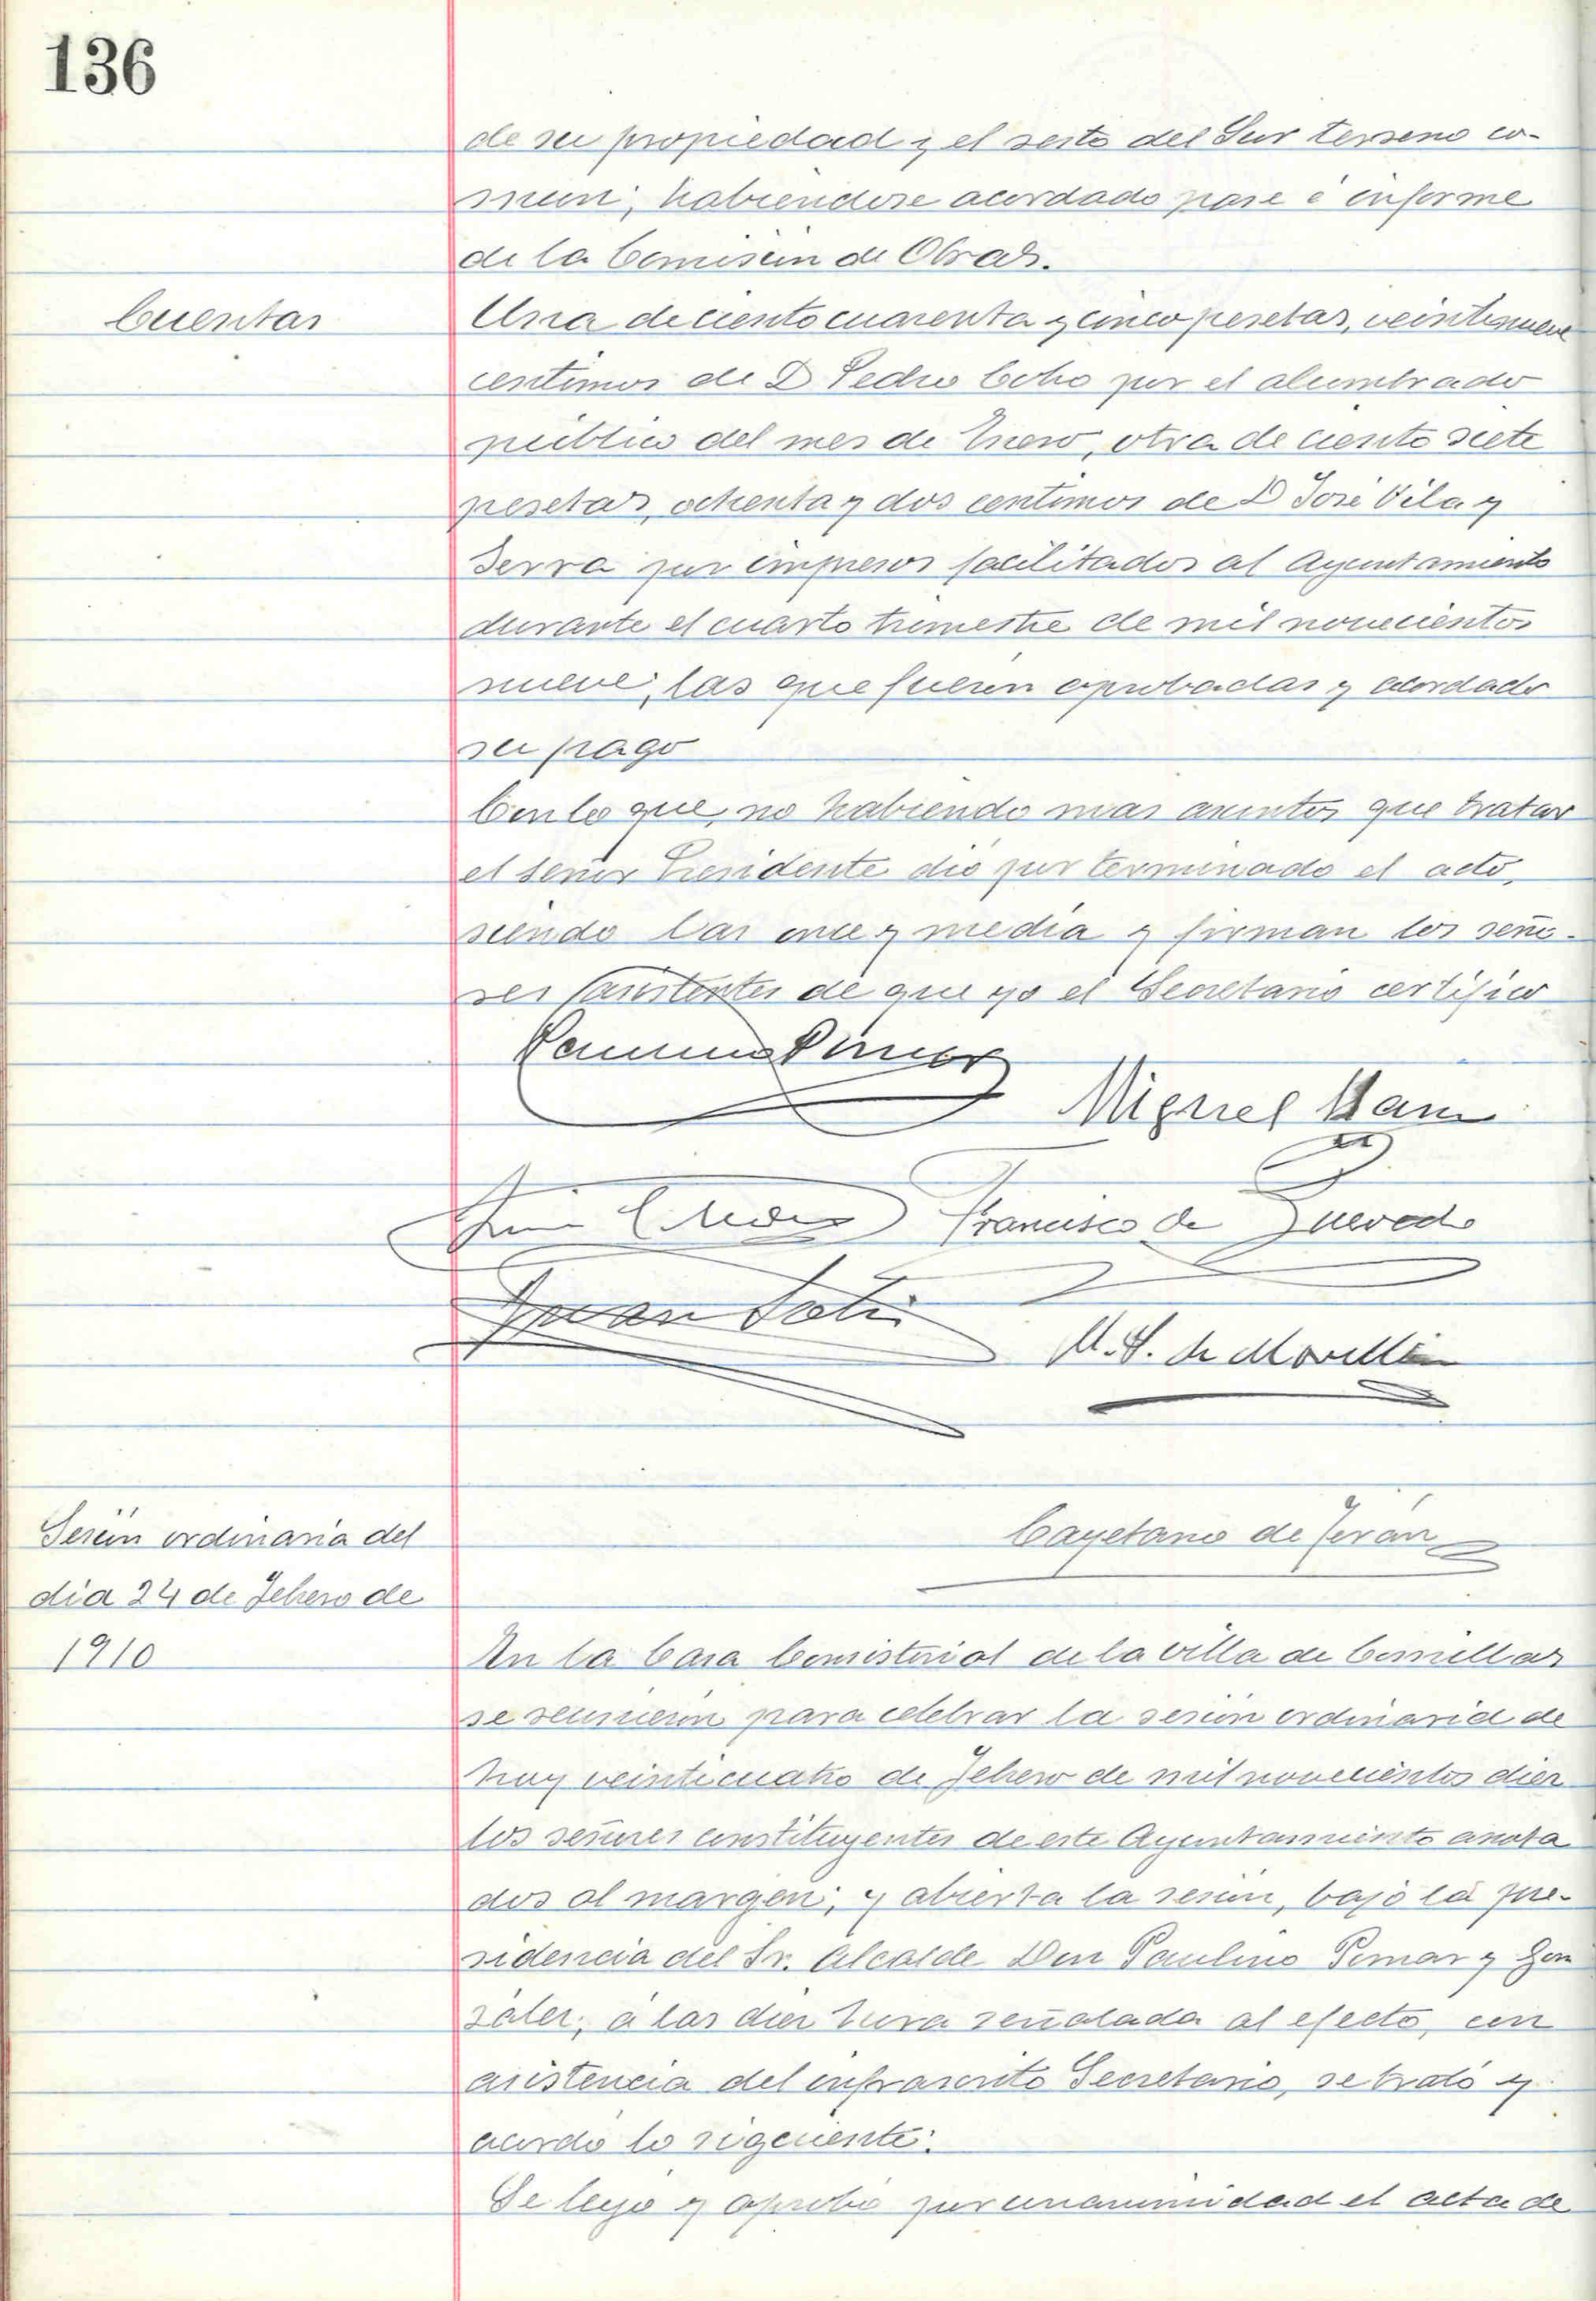 136
de su propiedad y el resto del Sur terreno co-
mun; habiendose acordado pase á informe
de la Comisión de Obras.
Cuentas
Una de ciento cuarenta y cinco pesetas, veintinueve
centimos de D Pedro Cobo por el alumbrado
público del mes de Enero, otra de ciento siete
pesetas, ochenta y dos centimos de D José Vila y
Serra por impresos facilitados al Ayuntamiento
durante el cuarto trimestre de mil novecientos
nueve; las que fueron aprobadas y acordado
su pago
Con lo que, no habiendo mas asuntos que tratar
el señor Presidente dió por terminado el acto,
siendo las once y media y firman los seño-
res asistentes de que yo el Secretario certifico
Paulino Pomar
Miguel
Francisco de Quevedo
Juan
M. S. de Movellán
Cayetano de Terán
Sesión ordinaria del
dia 24 de Febrero de
1910
En la Casa Consistorial de la villa de Comillas
se reunieron para celebrar la sesión ordinaria de
hoy veinticuatro de Febrero de mil novecientos diez
los señores constituyentes de este Ayuntamiento anota
dos al margen; y abierta la sesión, bajo la pre-
sidencia del Sr. Alcalde Don Paulino Pomar y Gon
zález, á las diez hora señalada al efecto, con
asistencia del infrascrito Secretario, se trató y
acordó lo siguiente:
Se leyó y aprobó por unanimidad el acta de